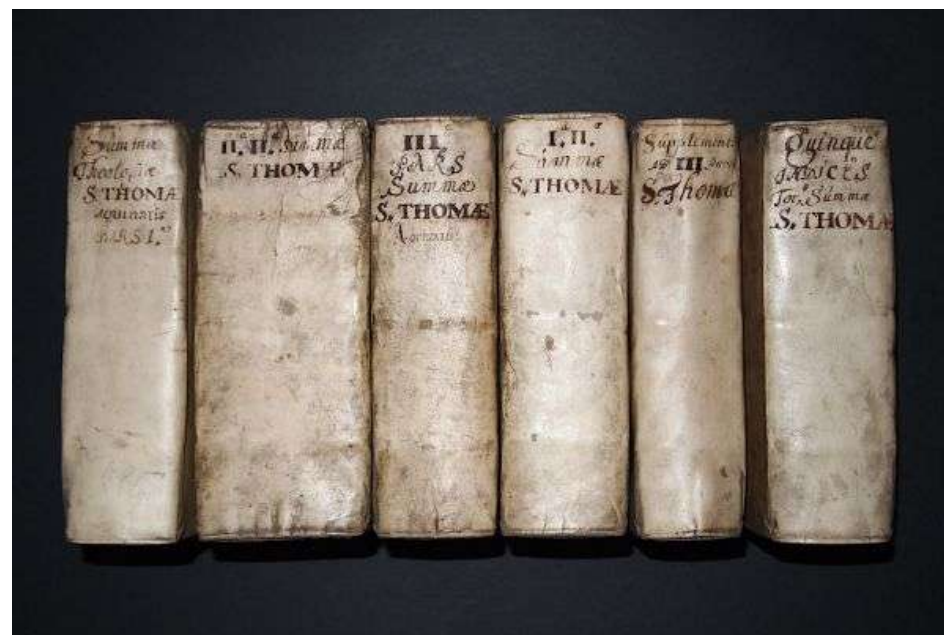 Summæ
Theologiæ
S. THOMÆ
Aquinatis
PARS I.ª
II.ª II.ª Summæ
S. THOMÆ
III.ª
PARS
Summæ
S. THOMÆ
Aquinatis
I.ª II.ª
Summæ
S. THOMÆ
Supplementu
ad III.
S. Thomæ
Quinque
INDICES
Summæ
S. THOMÆ